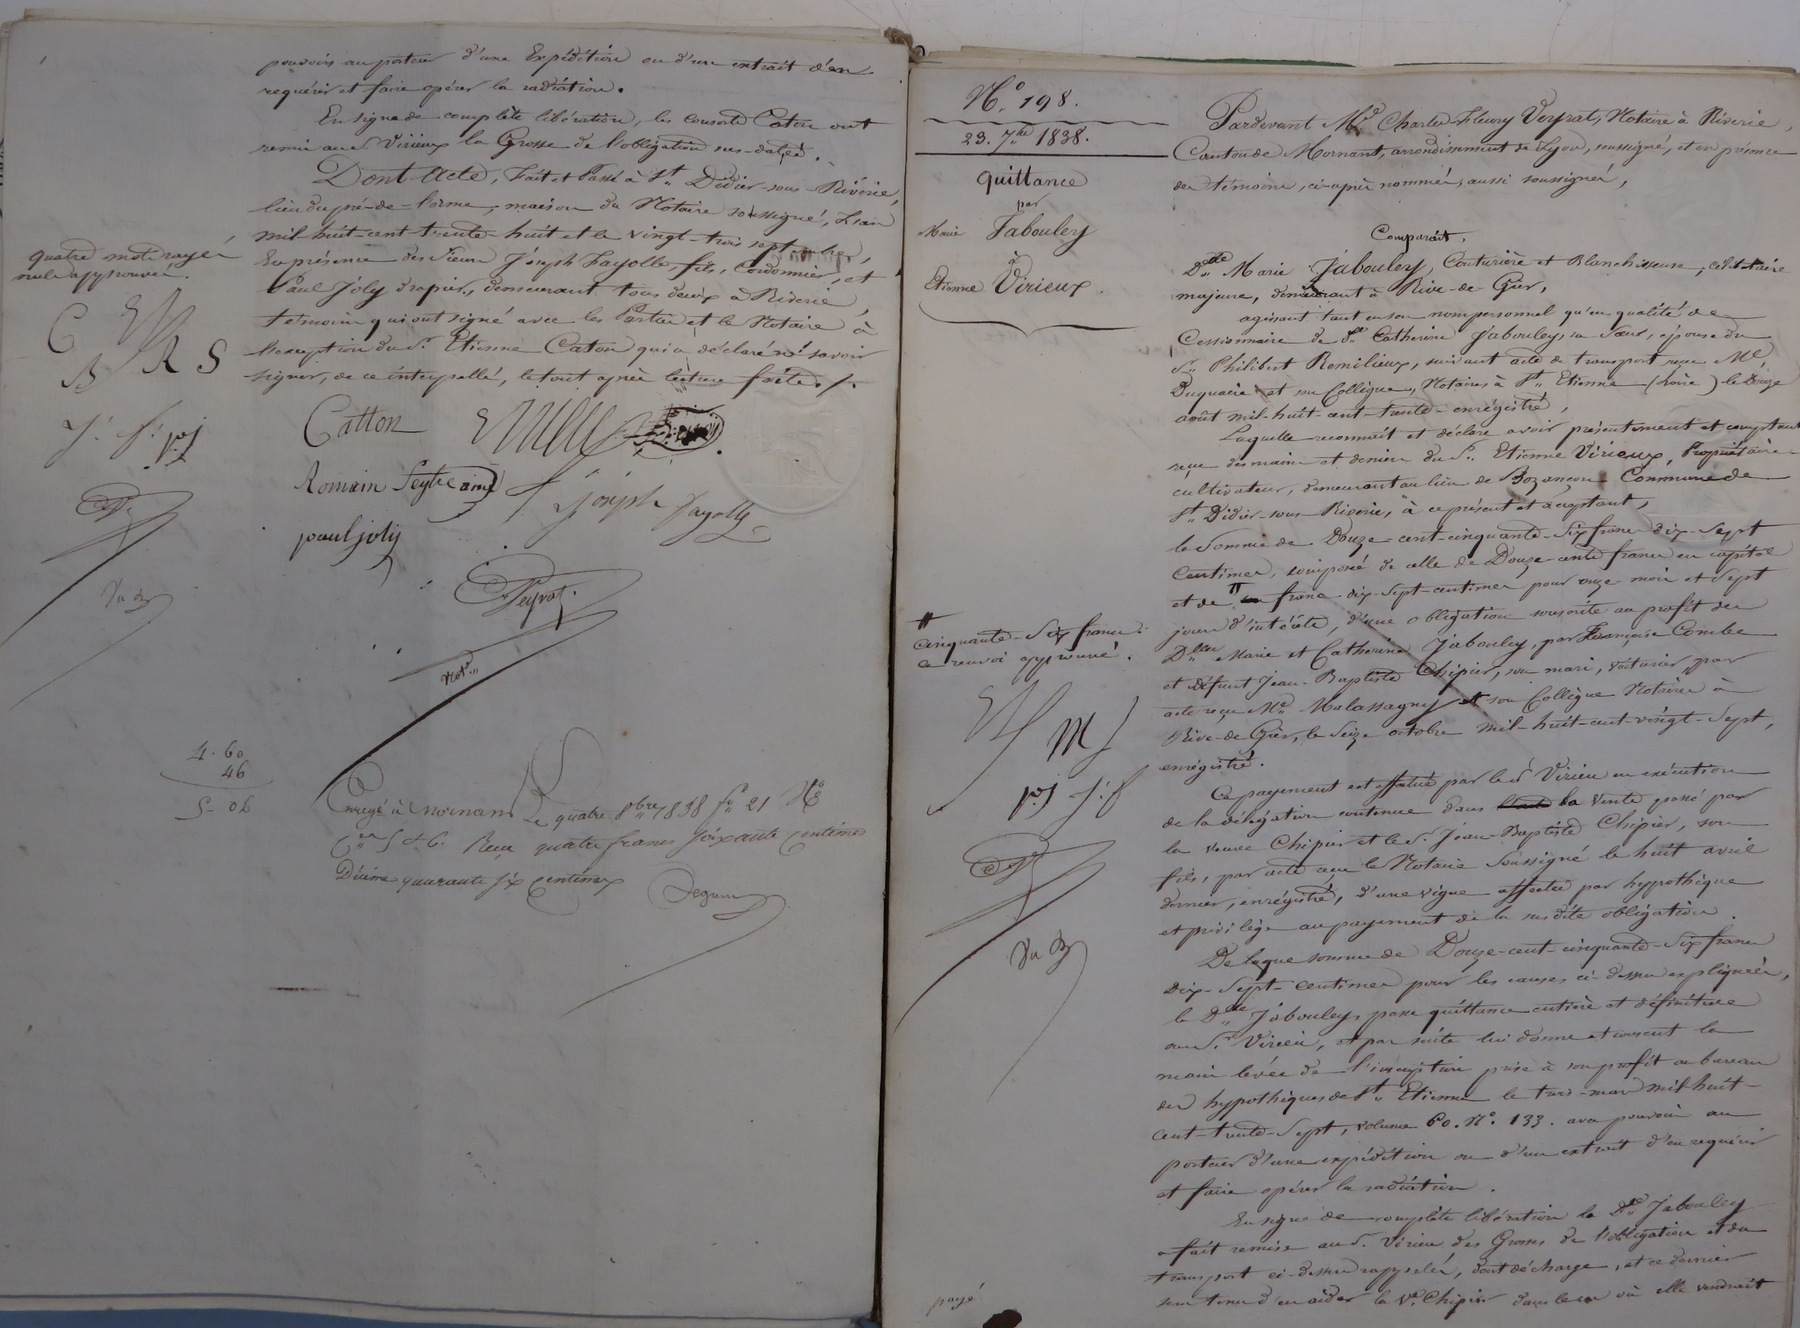 pouvoir au porteur d'une Expédition ou d'un extrait d'en
requérir et faire opérer la radiation.
En signe de complète libération, les consorts Caton ont
remis au S. Virieux la Grosse de l'obligation sus-datée.
Dont Acte, Fait et Passé à St. Didier-sous-Riverie,
lieu du pré-de-l'orme, maison du Notaire soussigné, L'an
mil-huit-cent-trente-huit et le vingt-trois septembre,
En présence des Sieurs Joseph Fayolle, fils, Cordonnier, et
Paul Joly drapier, demeurant tous deux à Riverie
témoins qui ont signé avec les Parties et le Notaire à
l'exception du S. Etienne Caton qui a déclaré ne savoir
signer, de ce interpellé, le tout après lecture faite./.
quatre mots rayés
nuls approuvés.
C EV
B R S
J. f. p.j
Catton
Romain Seytre ainé
Joseph Fayolle
paul joly
Veyrat.
Not..
4. 60
46
5- 06
Enregé à Mornant Le quatre 8bre 1838 f° 21 N°
Cen 5 & 6. Reçu quatre francs soixante Centimes
Décime quarante six Centimes
N.° 198.
23. 7bre 1838.
Quittance
par
Marie Jabouley
à
Etienne Virieux.
Pardevant Me Charles-Fleury Veyrat, Notaire à Riverie,
Canton de Mornant, arrondissement de Lyon, soussigné, et en présence
des témoins, ci-après nommés, aussi soussignés,
Comparait,
Delle Marie Jabouley, Couturière et Blanchisseuse, célibataire
majeure, demeurant à Rive-de-Gier,
agissant tant en son nom personnel qu'en qualité de
Cessionnaire de De Catherine Jabouley, sa Sœur, épouse du
Sr. Philibert Remilieux, suivant acte de transport reçu Me
et son Collègue, Notaires à St. Etienne (Loire) le Douze
août mil-huit-cent-trente-enrégistré,
Laquelle reconnait et déclare avoir présentement et comptant
reçu des mains et deniers du S.. Etienne Virieux, Propriétaire
cultivateur, demeurant au lieu de Bozançon Commune de
St. Didier-sous-Riverie, à ce présent et acceptant,
la Somme de Douze-cent-cinquante-six francs dix-sept
Centimes, composée de celle de Douze-cents francs en capital
et de " francs dix-sept-centimes pour onze mois et sept
jours d'intérêts, d'une obligation souscrite au profit des
Dlles Marie et Catherine Jabouley, par Françoise Combe
et défunt Jean-Baptiste Chipier, son mari, voiturier, par
acte reçu Me Malassagny et son Collègue Notaires à
Rive-de-Gier, le Seize octobre mil-huit-cent-vingt-sept,
enrégistré.
" cinquante-Six francs
ce renvoi approuvé.
EV MJ
p.j J.f
Ce payement est effectué par led. S. Virieu en exécution
de la délégation contenue dans la vente passé par
la veuve Chipier et le S. Jean-Baptiste Chipier, son
fils, par acte reçu le Notaire Soussigné le huit avril
dernier, enrégistré, d'une vigne affectée par hypothèque
et privilège au payement de la susdite obligation.
De laque somme de Douze-cent-cinquante-six francs
dix-sept-centimes pour les causes ci-dessus expliquées,
la Delle Jabouley passe quittance entière et définitive
au S.r Virieu, et par suite lui donne et consent la
main levée de l'inscription prise à son profit au bureau
des hypothèques de St. Etienne le trois mars mil-huit-
cent-trente-sept, volume 60. N°. 133. avec pouvoir au
porteur d'une expédition ou d'un extrait d'en requérir
et faire opérer la radiation.
En signe de complète libération la Dlle Jabouley
a fait remise au S. Virieu, des Grosses de l'obligation et du
transport ci-dessus rappelés, dont décharge, et ce dernier
sera tenu d'en aider la Ve. Chipier dans le cas où elle voudrait
payé